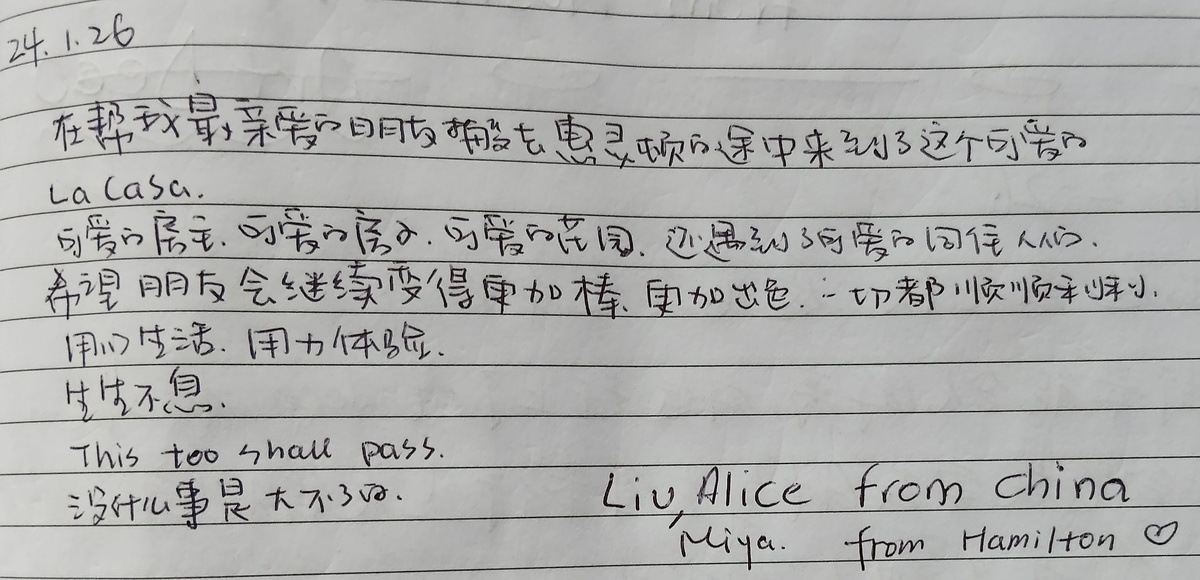 24.1.26
在帮我最亲爱的朋友搬去惠灵顿的途中来到了这个可爱的
La Casa.
可爱的房主.可爱的房子.可爱的花园.还遇到了可爱的同住人们.
希望朋友会继续变得更加棒.更加出色.一切都顺顺利利.
用心生活.用力体验.
生生不息.
This too shall pass.
没什么事是大不了的.
Liu, Alice from China
Miya. from Hamilton ♡